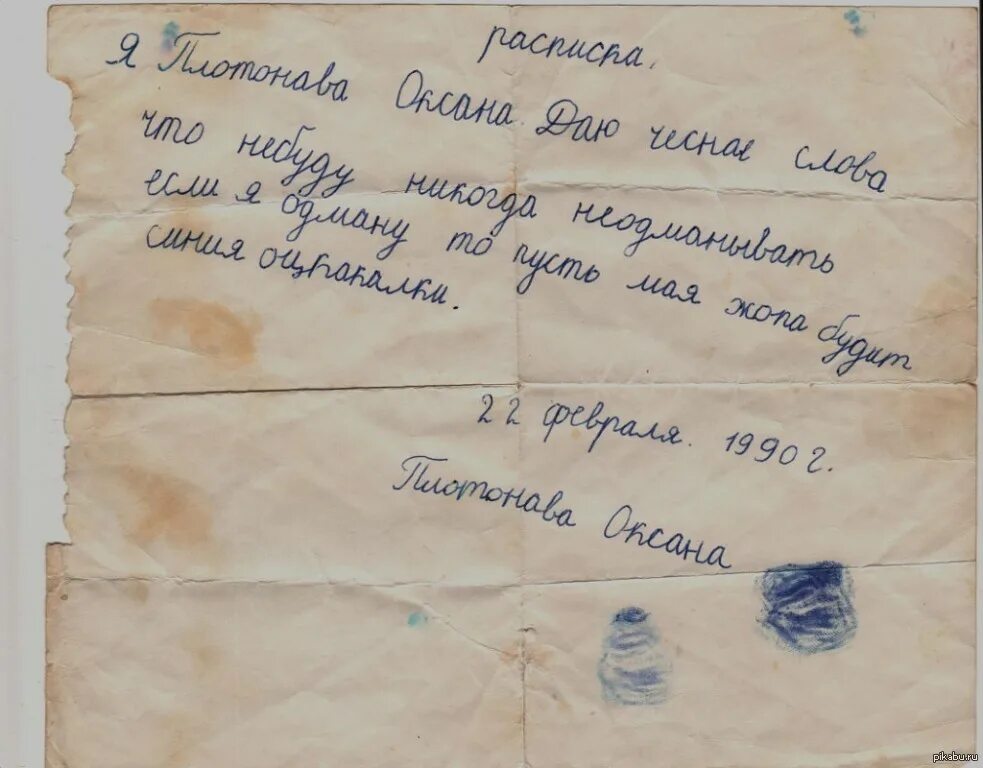 расписка.
Я Плотонава Оксана. Даю чесная слова
что небуду никогда неодманывать
если я одману то пусть мая жопа будит
синия оцкакалки.
22 февраля. 1990 г.
Плотонава Оксана
pikabu.ru